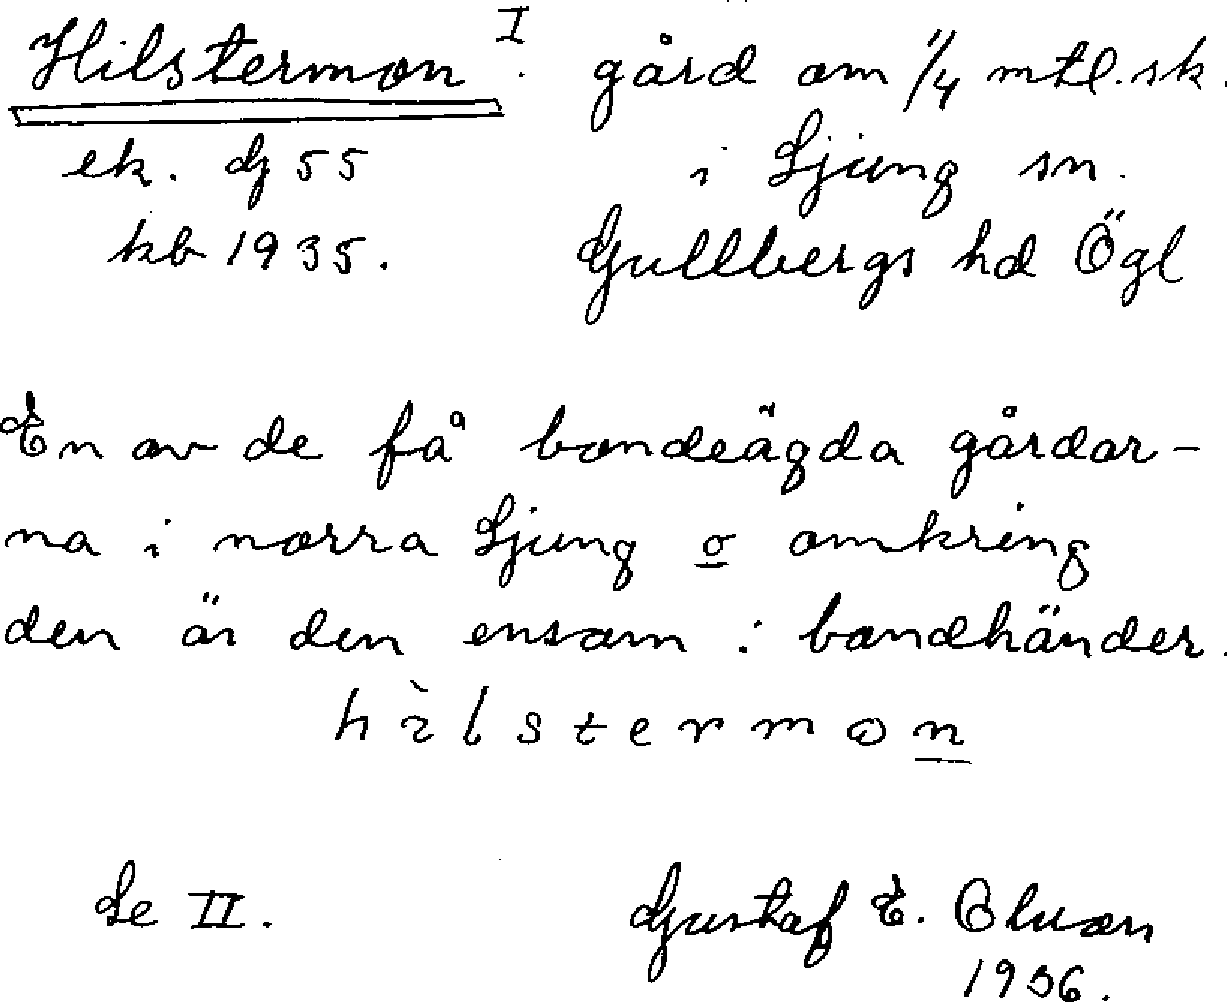 Hilstermon I. gård om 1/4 mtl. sk.
ek. dj 55 i Ljung sn.
kb 1935. Gullbergs hd Ögl
En av de få bondeägda gårdar-
na i norra Ljung o omkring
den är den ensam i bondhänder.
hìlstermon
Se II. Gustaf E. Olson
1936.